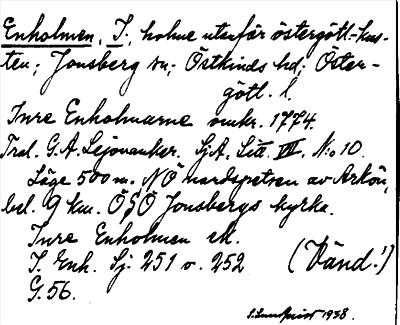 Enholmen, I., holme utanför östergötl.-kus-
ten; Jonsberg sn; Östkinds hd; Öster-
götl. l.
Inre Enholmarne omkr. 1774.
Trol. G. A. Lejonanker. SjA, Litt. VII, No 10.
Läge 500 m. NÖ nordspetsen av Arkön,
bel. 9 km. ÖSÖ Jonsbergs kyrka.
Inre Enholmen ek.
I. Enh. Sj. 251 o. 252 (Vänd!)
G. 56.
1938